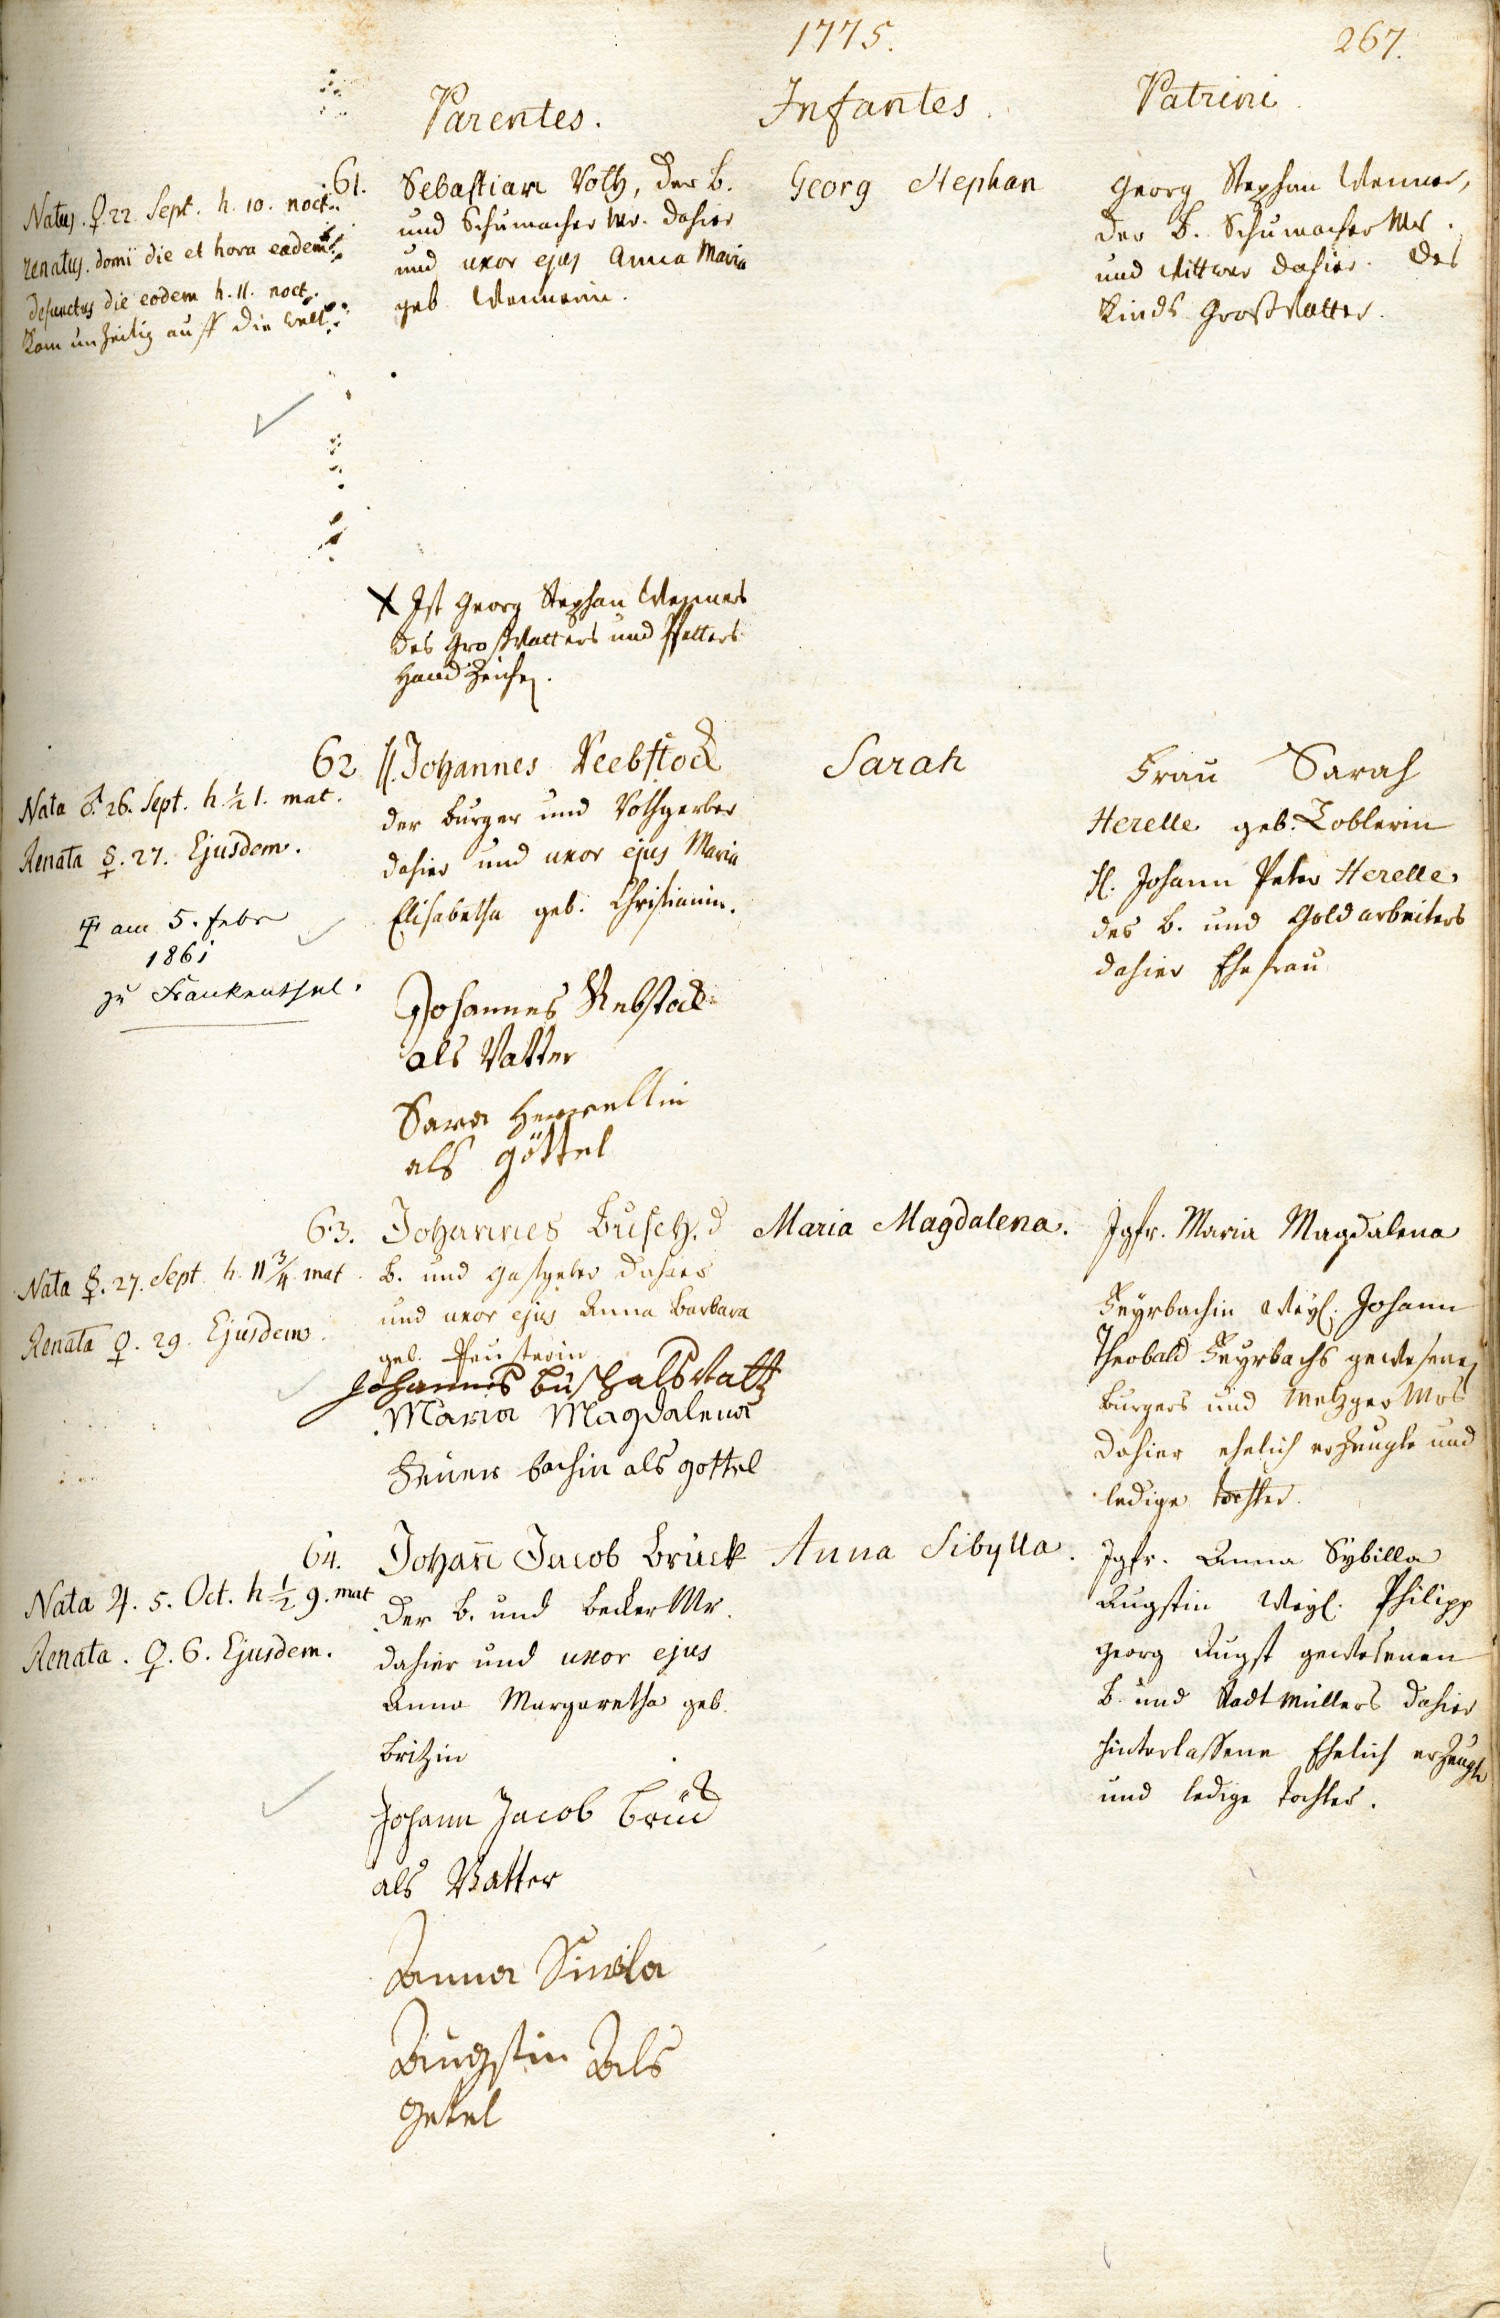 1775.
267.
Parentes.
Infantes.
Patrini.
61.
Natus. ♀. 22. Sept. h. 10. noct.
renatus. domi die et hora eadem
defunctus die eodem h. 11. noct.
Kam unzeitig auff die welt.
Sebastian Voltz, der b.
und Schumacher Mr. dahier
und uxor ejus Anna Maria
geb. Wennerin.
Georg Stephan
Georg Stephan Wenner,
der b. Schumacher Mr.
und Wittwer dahier. des
Kinds Großvatter.
X Ist Georg Stephan Wenners
des Großvatters und Pfetters
Hand Zeichen.
62
Nata ♂. 26. Sept. h. ½ 1. mat.
Renata ☿. 27. Ejusdem.
am 5. Febr
1861
zu Frankenthal.
H. Johannes Reebstock
der burger und Rothgerber
dahier und uxor ejus Maria
Elisabetha geb. Christianin.
Johannes Rebstock
als Vatter
Sara Herrellin
als göttel
Sarah
Frau Sarah
Herelle geb. Toblerin
H. Johann Peter Herelle,
des b. und Goldarbeiters
dahier Ehefrau
63.
Nata ☿. 27. Sept. h. 11 ¾ mat.
Renata ♀. 29. Ejusdem.
Johannes Busch. d
b. und Gastgeber dahier
und uxor ejus Anna Barbara
geb.
Johannes Busch als Vatter
Maria Magdalena
Feuer bachin als gottel
Maria Magdalena.
Jgfr. Maria Magdalena
Feyrbachin Weyl. Johann
Theobald Feyrbachs gewesenen
burgers und Metzger Mrs
dahier ehelich erzeugte und
ledige Tochter.
64.
Nata ♃. 5. Oct. h ½ 9. mat
Renata. ♀. 6. Ejusdem.
Johan̄ Jacob Brück
der b. und becker Mr.
dahier und uxor ejus
Anna Margaretha geb.
Britzin
Johann Jacob Brück
als Vatter
Anna Siwila
Augstin Als
getel
Anna Sibylla.
Jgfr. Anna Sybilla
Augstin Weyl. Philipp
Georg Augst gewesenen
b. und Stadtmüllers dahier
hinterlassene Ehelich erzeugte
und ledige Tochter.